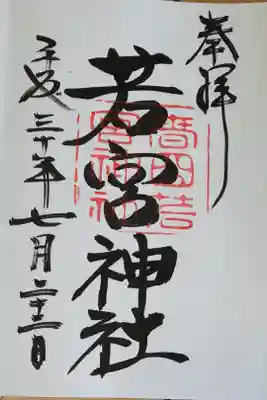 奉拝
若宮神社
平成三十年七月二十二日
田若
宮神社